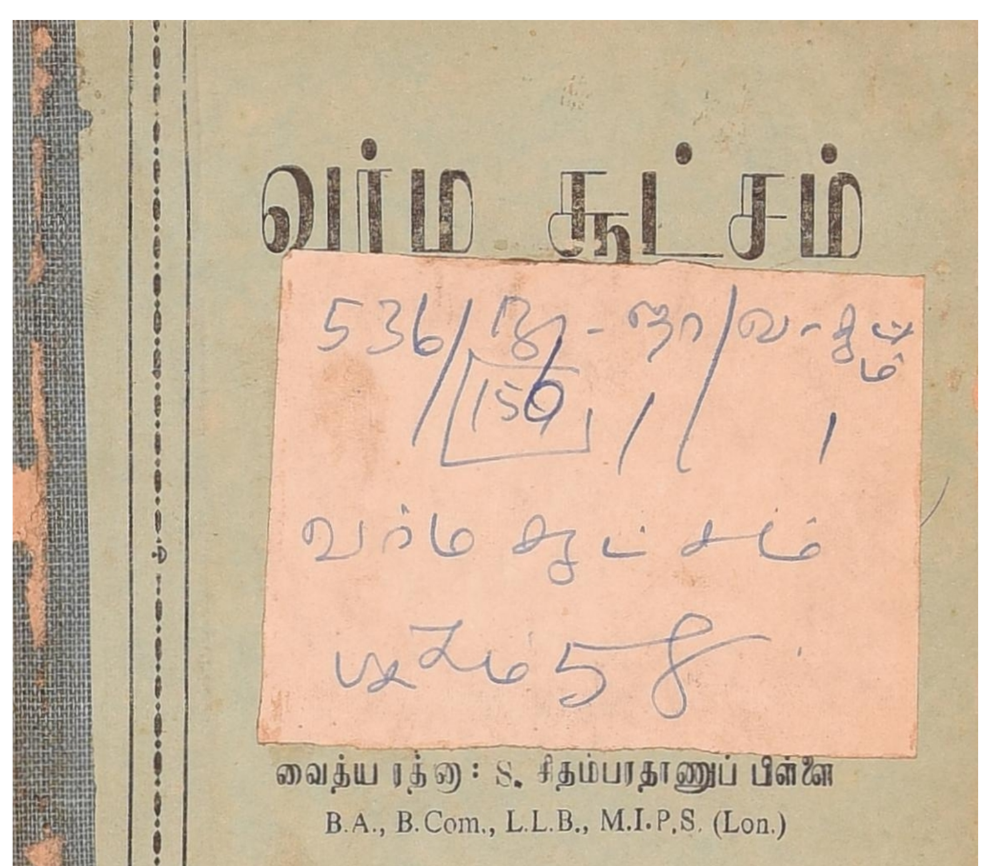 வர்ம சூட்சம்
536/நூ-ஞா/வ-சூட்
சம்
150
வர்ம சூட்சம்
பக்கம் 58
வைத்ய ரத்னா: S. சிதம்பரதாணுப் பிள்ளை
B.A., B.Com., L.L.B., M.I.P.S. (Lon.)